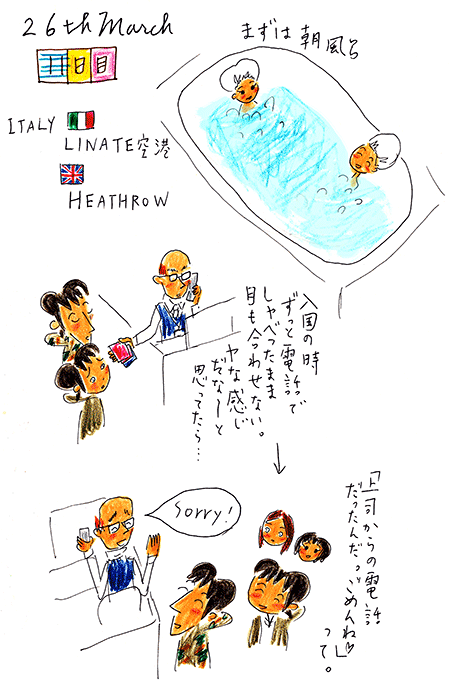 26th March
十日目
ITALY
LINATE空港
HEATHROW
まずは朝風呂
入国の時
ずっと電話で
しゃべったまま
目も合わせない。
ヤな感じ
だなーと
思ってたら…
Sorry!
「上司からの電話
だったんだっごめんね♡」
って。